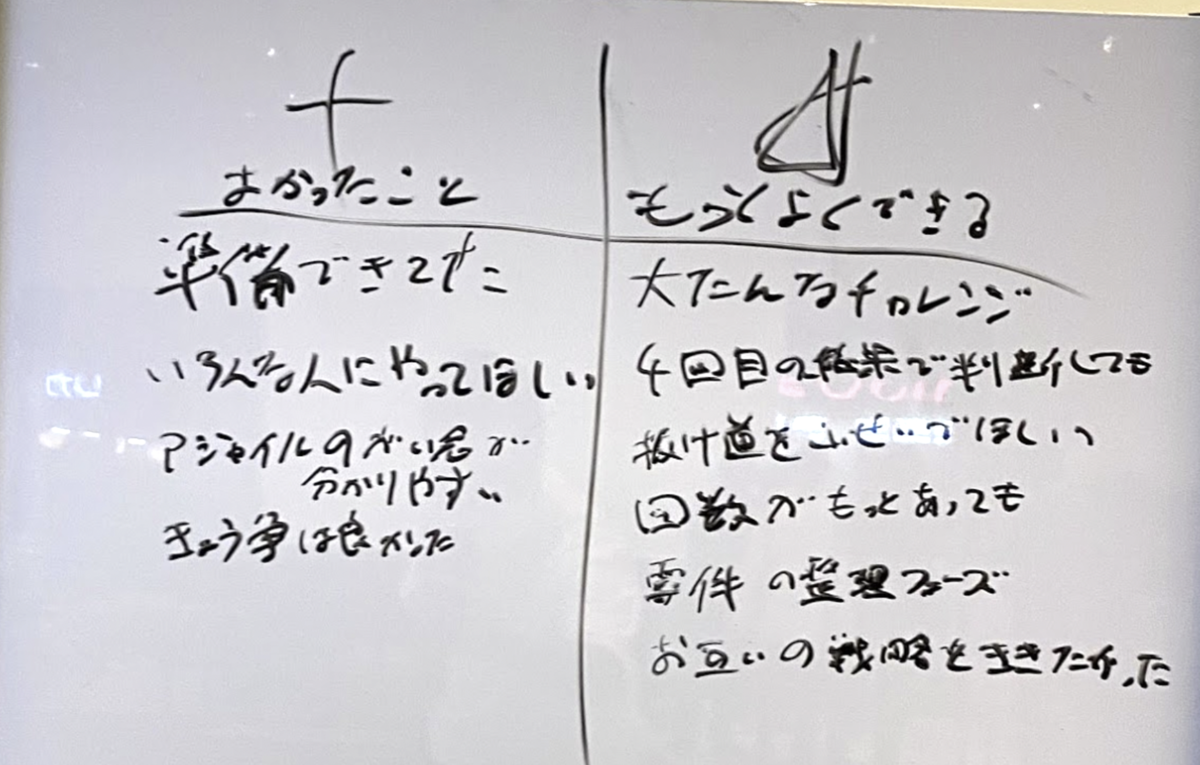 +
よかったこと
準備できてた
いろんな人にやってほしい
アジャイルのがい念が
分かりやすい
きょう争は良かった
Δ
もっとよくできる
大たんなチャレンジ
4回目の結果で判断しても
抜け道をふせいでほしい
回数がもっとあっても
要件の整理フェーズ
お互いの戦略をききたかった